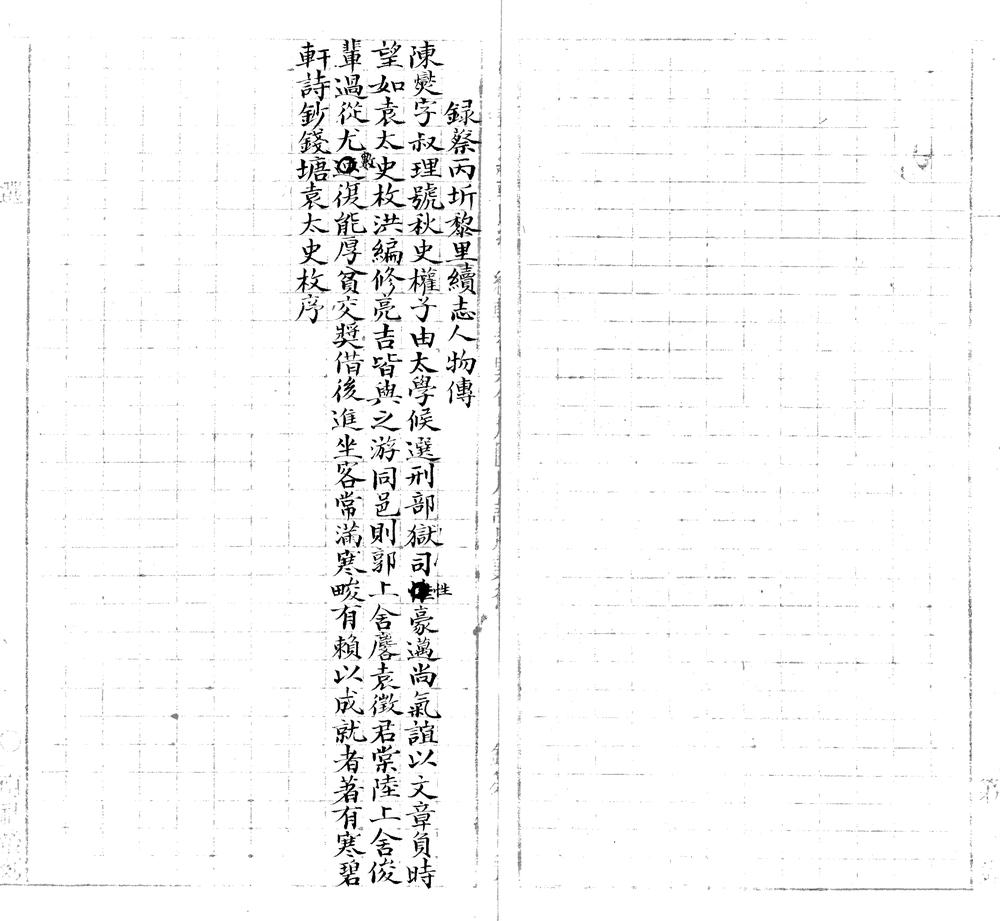 録蔡丙圻黎里續志人物傳
陳燮字叔理號秋史權子由太學候選刑部獄司性豪邁尚氣誼以文章負時
望如袁太史枚洪編修亮吉皆與之游同邑則郭上舍麐袁徵君棠陸上舍俊
輩過從尤數復能厚貧交奬借後進坐客常滿寒畯有賴以成就者著有寒碧
軒詩鈔錢塘袁太史枚序